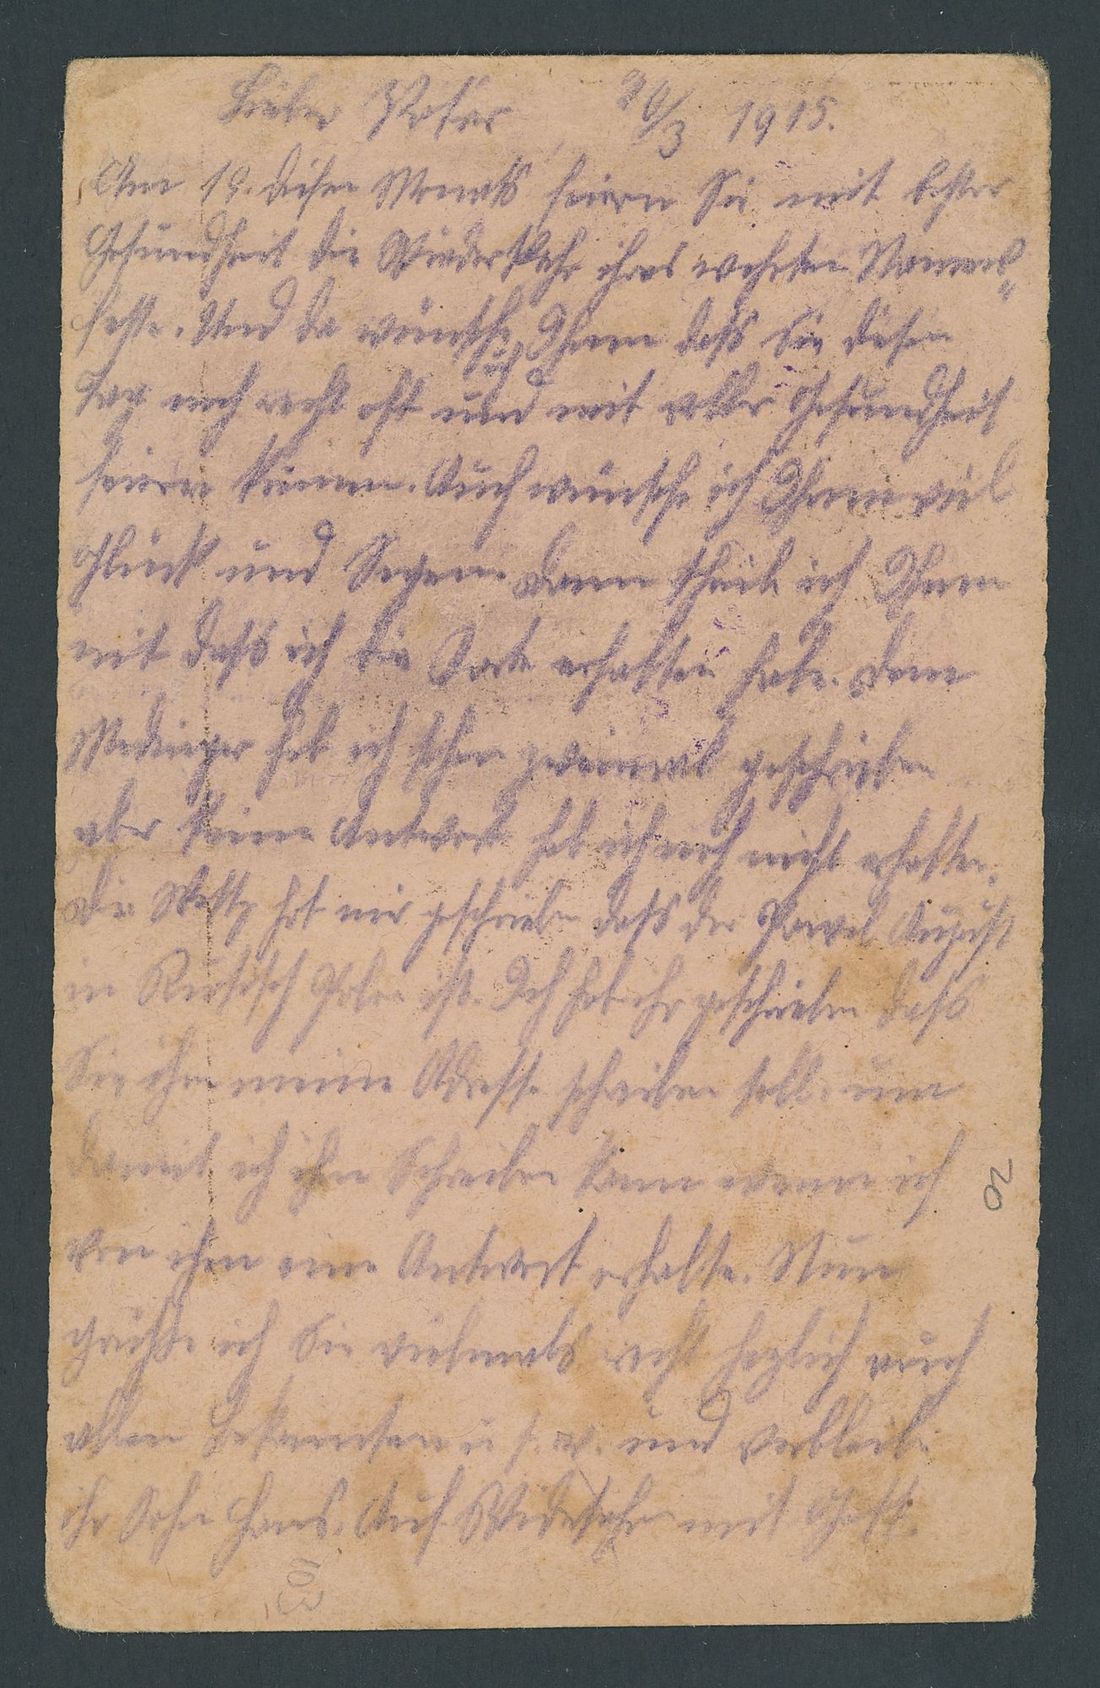 Lieber Vater 1915.
Am 19. diesen Monats feiern Sie mit bester
Gesundheit die Wiederkehr ihres wehrten Namens„
feste. Und da wünsche ich Ihnen daß Sie diesen
Tag noch recht oft und mit aller Gesundheit
feiern kännen. Auch wünsche ich Ihnen viel
Glück und Segen. Dann theile ich Ihnen
mit daß ich die Karte erhalten habe. Dem
Medinger hab ich schon zweimal geschrieben
aber keine Antwort hab ich noch nicht erhalten.
Die hat mir geschrieben dass der August
in Rusisch Polen ist. Ich hab ihr geschrieben daß
Sie ihm meine Adresse schreiben soll. um
damit ich ihm Schreiben kann wenn ich
von ihm eine Antwort erhalte. Nun
grüße ich Sie vielmals recht herzlich auch
allen Bekannten u. s. w. und verbleibe
ihr Sohn Hans. Auf Widersehn mit Gott.
20
103